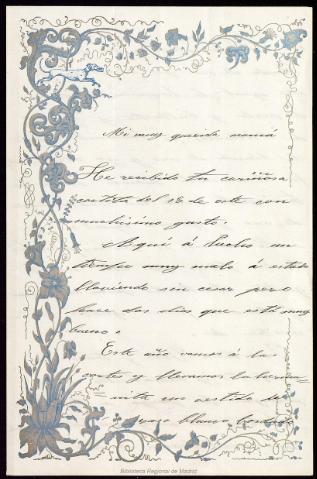 Mi muy querida mamá
He recibido tu cariñosa
cartita del 18 de este con
muchísimo gusto.
Aquí á hecho un
tiempo muy malo á estado
lloviendo sin cesar pero
hace dos dias que está muy
bueno.
Este año vamos á las
cortes y llevamos
un vestido de
blanco
Biblioteca Regional de Madrid